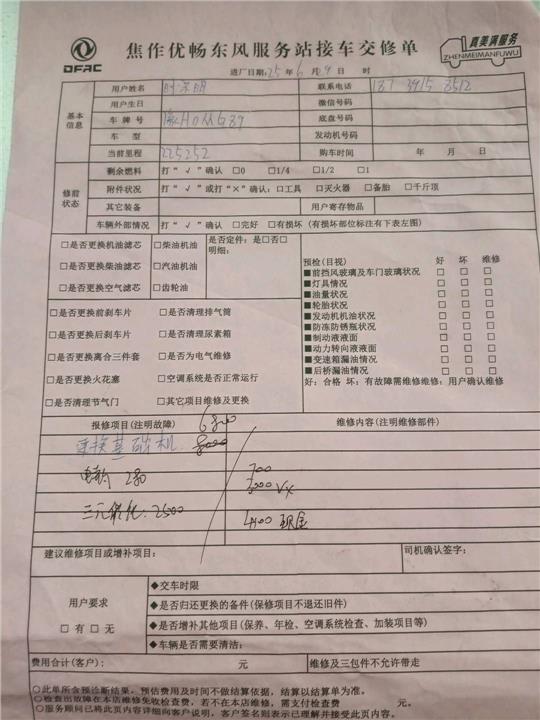 DFAC
焦作优畅东风服务站接车交修单
真美满服务
ZHENMEIMANFUWU
进厂日期:25年6月9日 时
基本信息
用户姓名 联系电话
用户生日 微信号码
车牌号 底盘号码
车型 发动机号码
当前里程 225252 购车时间 年 月 日
修前状态
剩余燃料 打“√”确认 □0 □1/4 □1/2 □1
附件状况 打“√”或打“×”确认:□工具 □灭火器 □备胎 □千斤顶
其它装备 用户寄存物品
车辆外部情况 打“√”确认 □完好 □有损坏 (有损坏部位标注有下表左图)
□是否更换机油滤芯 □柴油机油
□是否更换柴油滤芯 □汽油机油
□是否更换空气滤芯 □齿轮油
是否定件:是□否□
明细:
□是否更换前刹车片 □是否清理排气筒
□是否更换后刹车片 □是否清理尿素箱
□是否更换离合三件套 □是否为电气维修
□是否更换火花塞 □空调系统是否正常运行
□是否清理节气门 □其它项目维修及更换
预检(目视) 好 坏 维修
■前挡风玻璃及车门玻璃状况 □ □ □
■灯具情况 □ □ □
■油量状况 □ □ □
■轮胎状况 □ □ □
■发动机机油状况 □ □ □
■防冻防锈瓶状况 □ □ □
■制动液液面 □ □ □
■动力转向液液面 □ □ □
■变速箱漏油情况 □ □ □
■后桥漏油情况 □ □ □
好:合格 坏:有故障需维修维修:用户确认维修
报修项目(注明故障) 维修内容(注明维修部件)
更换基础机 8000
280 700
3000 VX
三元催化.2500 4100 现金
建议维修项目或增补项目: 司机确认签字:
用户要求
□有 □无
◆交车时限
◆是否归还更换的备件(保修项目不退还旧件)
◆是否增补其他项目(保养、年检、空调系统检查、加装项目等)
◆车辆是否需要清洁:
费用合计(客户): 元 维修及三包件不允许带走
○此单所含预诊断结果,预估费用及时间不做结算依据,结算以结算单为准。
○检查出故障在本店维修免收检查费,若不在本店维修,需支付检查费 元。
○服务顾问已将此页内容详细向客户说明,客户签名则表示已理解并接受此页内容。